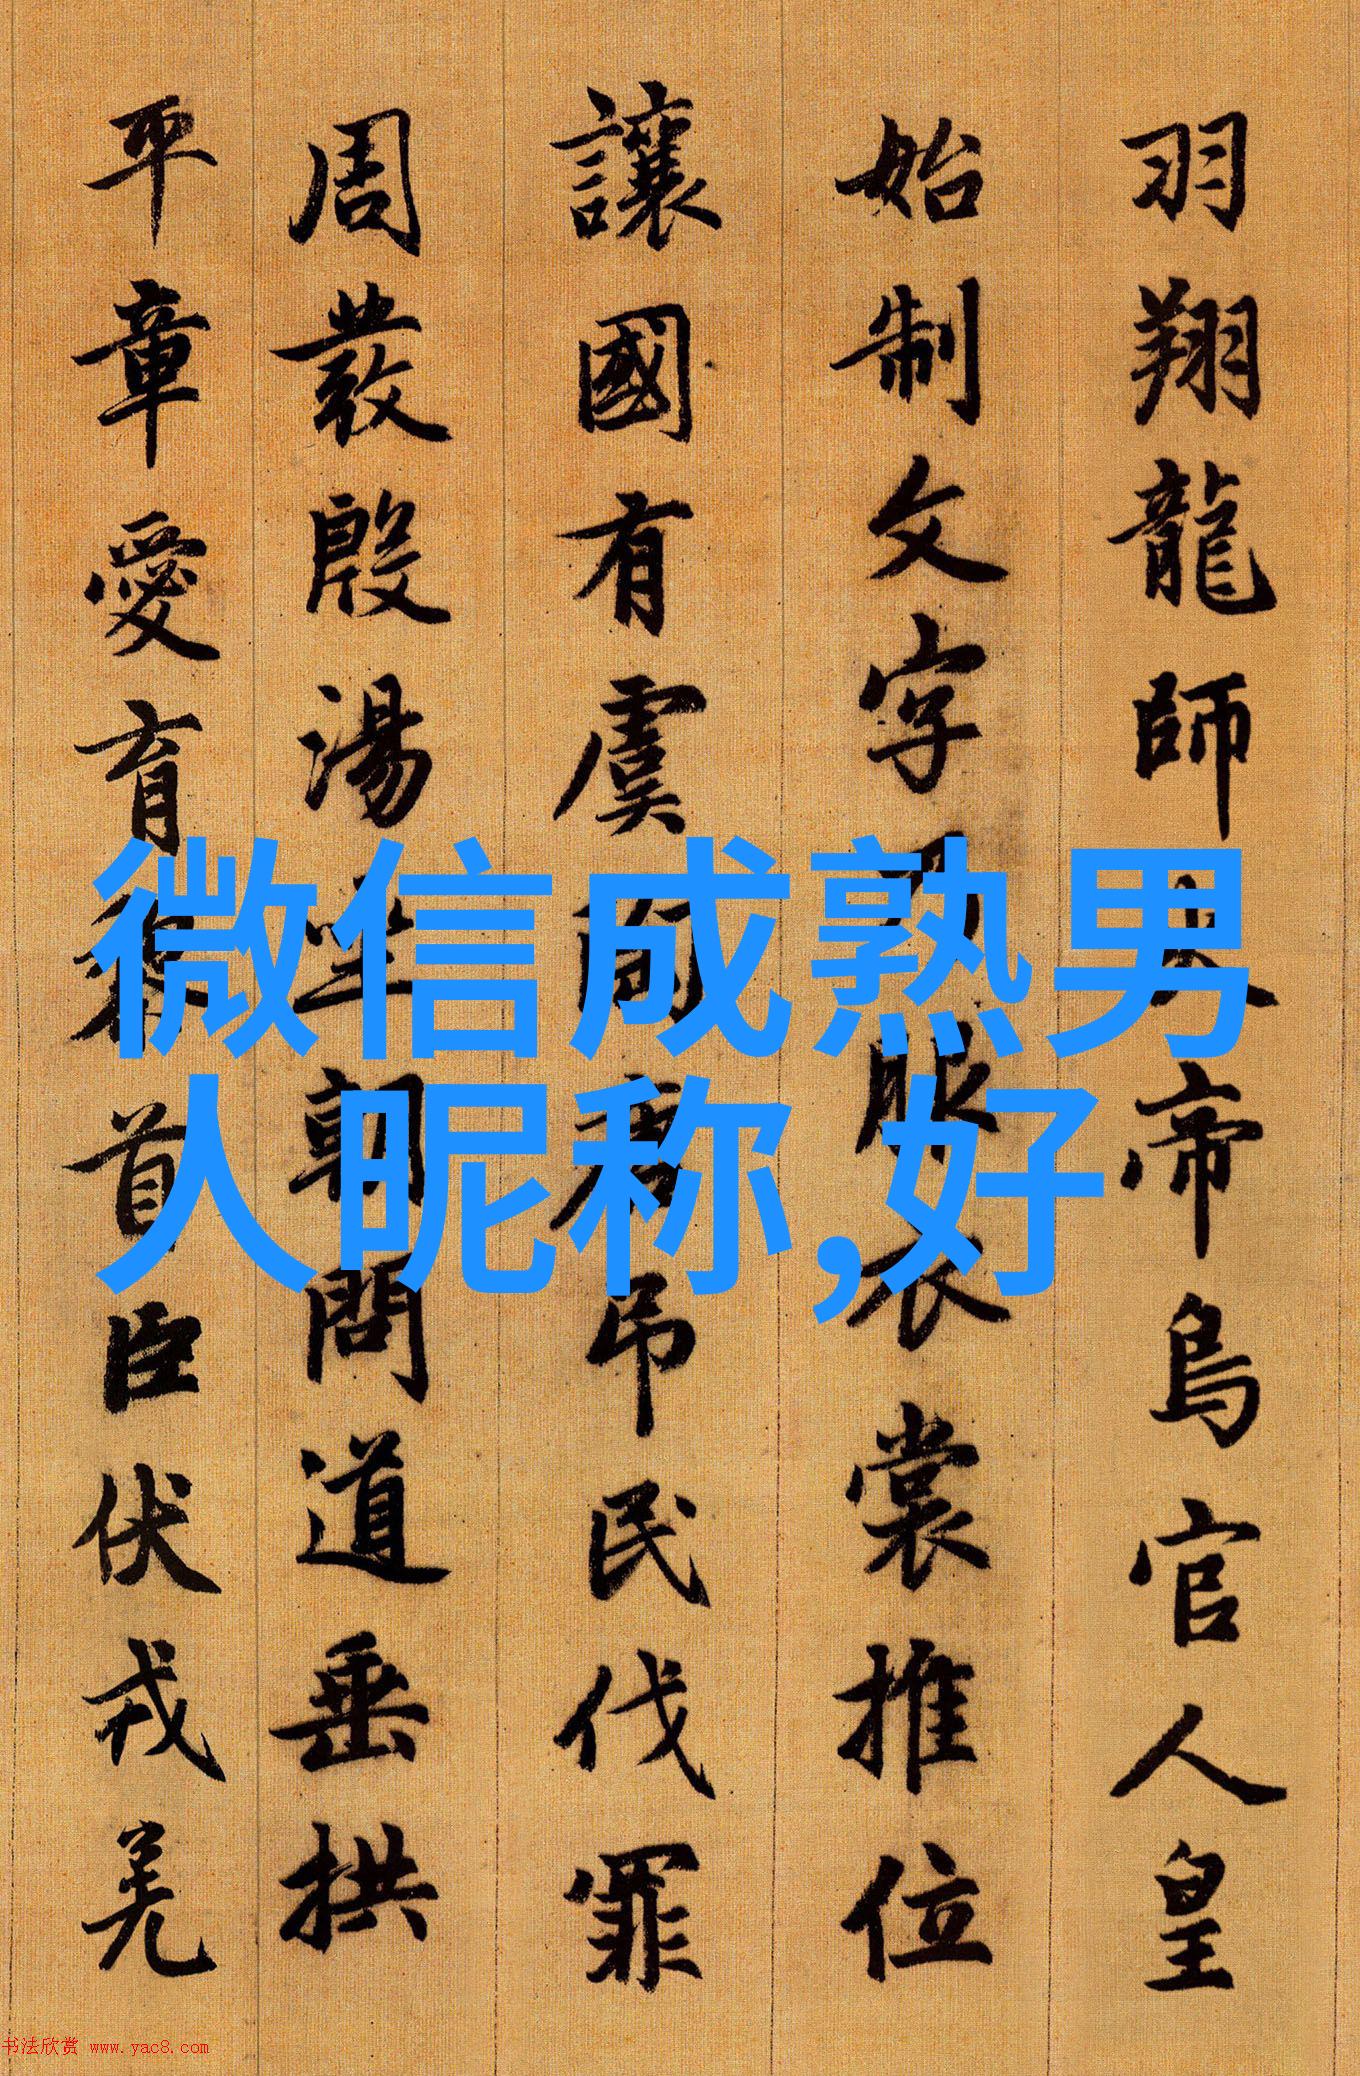 羽翔龍師火帝鳥官人皇
始制文字服衣裳推位
讓國有虞陶唐吊民伐罪
周發殷湯坐朝問道垂拱
平章愛育黎首臣伏戎羌
微信成熟男
人昵称,好
书法欣赏 www.yac8.com